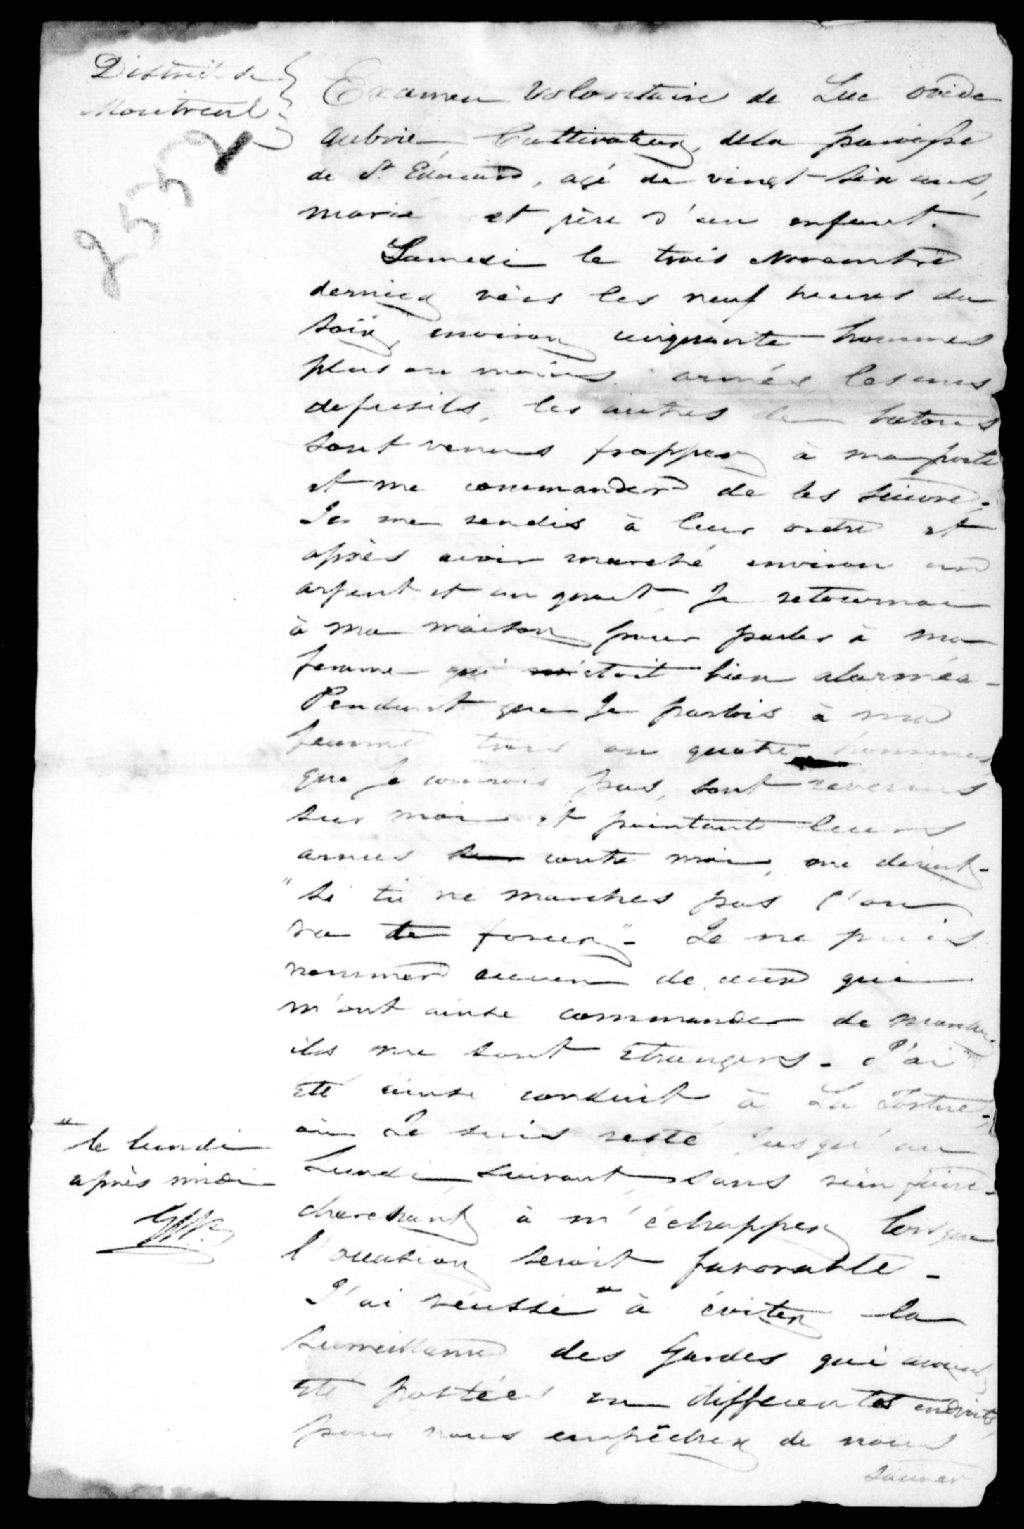 District de
Montreal
2552
Examen Volontaire de Luc ovide
aubrie Cultivateur, dela paroisse
de St. Edouard, agé de vingt-six ans,
marié et père d'un enfant.
Samedi le trois Novembre
dernier vers les neuf heures du
soir, environ cinquante hommes
plus ou moins armés les uns
defusils, les autres de batons
sont venus frapper à ma porte
et me commander de les suivre.
Je me rendis à leur ordre et
après avoir marché environ un
arpent et un quart, Je retournai
à ma maison pour parler à ma
femme qui étoit bien alarmée -
Pendant que Je parlois à ma
femme trois ou quatre hommes
que Je connois pas, sont revenus
sur moi et pointant leurs
armes contre moi, me dirent -
"si tu ne marches pas l'on
va te forcer" - Je ne puis
nommer aucun de ceux qui
m'ont ainsi commander de marcher.
ils me sont étrangers - J'ai
été ainsi conduit à La Tortue,
où Je suis resté Jusqu'au
Lundi suivant, sans rien faire
cherchant à m'échapper lorsque
l'occasion seroit favorable -
J'ai réussi " à éviter la
surveillance des Gardes qui avoient
été postées en differentes endroits
pour nous empêcher de nous
sauver
" le lundi
après midi